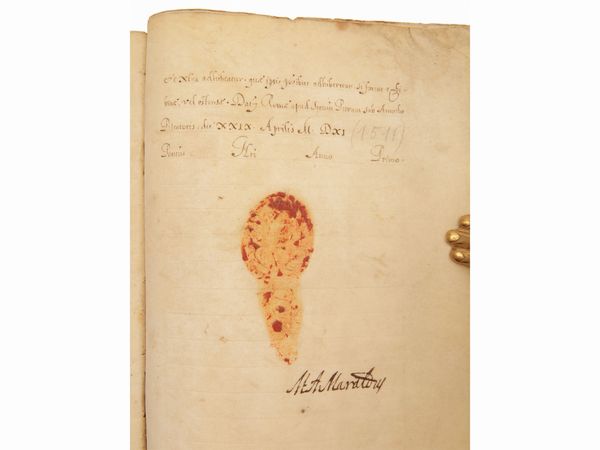 et xhia adhibeatur, quae ipsis pntibus adhiberetur, si forent exhi-
bitae, vel ostensae. Datū Romae apud Sanctum Petrum sub Annulo
Piscatoris, die XXIX Aprilis M. DXI (1511)
Pontus Nri Anno Primo.
M. A. Maraldus